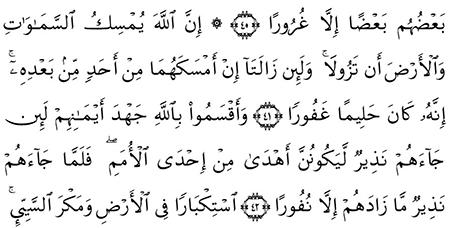 بَعْضُهُم بَعْضًا إِلَّا غُرُورًا ﴿٤٠﴾ ۞ إِنَّ ٱللَّهَ يُمْسِكُ ٱلسَّمَـٰوَٰتِ
وَٱلْأَرْضَ أَن تَزُولَا ۚ وَلَئِن زَالَتَآ إِنْ أَمْسَكَهُمَا مِنْ أَحَدٍ مِّنۢ بَعْدِهِۦٓ ۚ
إِنَّهُۥ كَانَ حَلِيمًا غَفُورًا ﴿٤١﴾ وَأَقْسَمُوا۟ بِٱللَّهِ جَهْدَ أَيْمَـٰنِهِمْ لَئِن
جَآءَهُمْ نَذِيرٌ لَّيَكُونُنَّ أَهْدَىٰ مِنْ إِحْدَى ٱلْأُمَمِ ۖ فَلَمَّا جَآءَهُمْ
نَذِيرٌ مَّا زَادَهُمْ إِلَّا نُفُورًا ﴿٤٢﴾ ٱسْتِكْبَارًا فِى ٱلْأَرْضِ وَمَكْرَ ٱلسَّيِّئِ ۚ